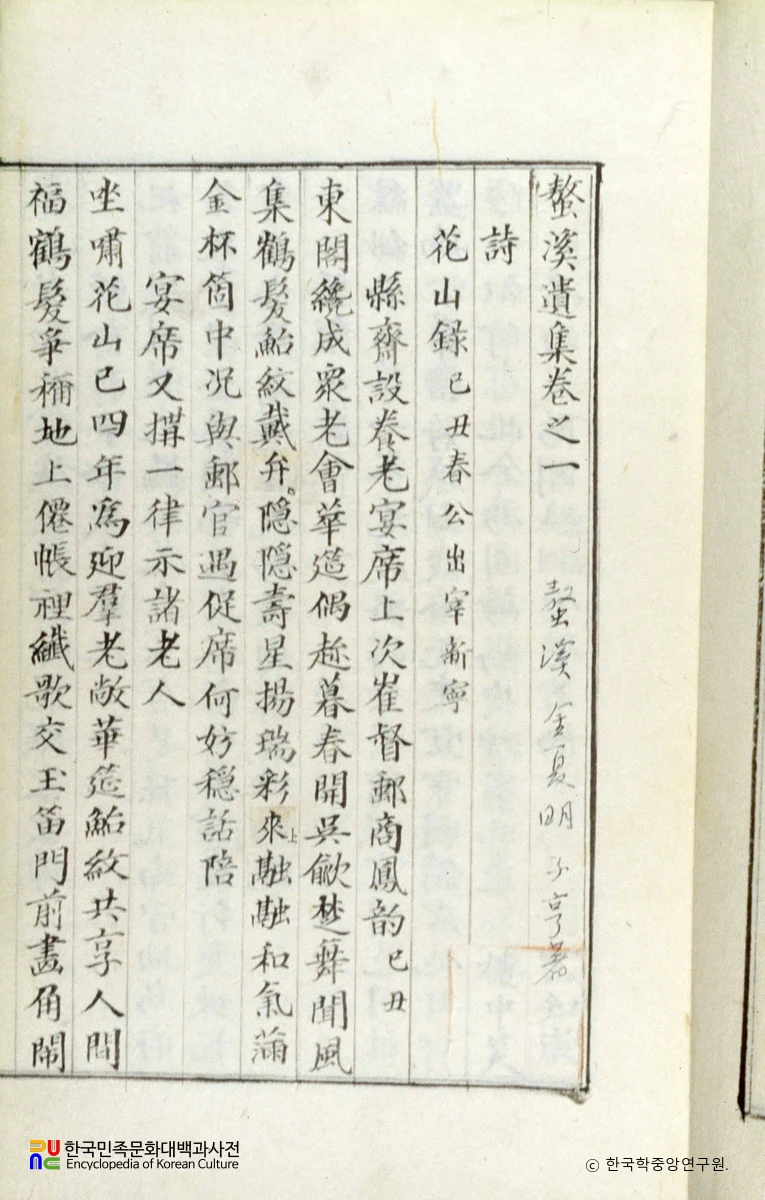 螯溪遺集卷之一　螯溪金夏明子亨著
詩
花山錄己丑春公出宰新寧
縣齋設養老宴席上次崔督郵商鳳韵己丑
東閣纔成衆老會華筵偶趂暮春開吳歈楚舞聞風
集鶴髮鮐紋戴弁隱隱壽星揚瑞彩來上融融和氣滿
金杯箇中况與郵官遇促席何妨穩話陪
宴席又搆一律示諸老人
坐嘯花山已四年爲迎羣老敞華筵鮐紋共享人間
福鶴髮爭稱地上僊帳裡纖歌交玉笛門前畵角鬧
한국민족문화대백과사전
Encyclopedia of Korean Culture
ⓒ 한국학중앙연구원.